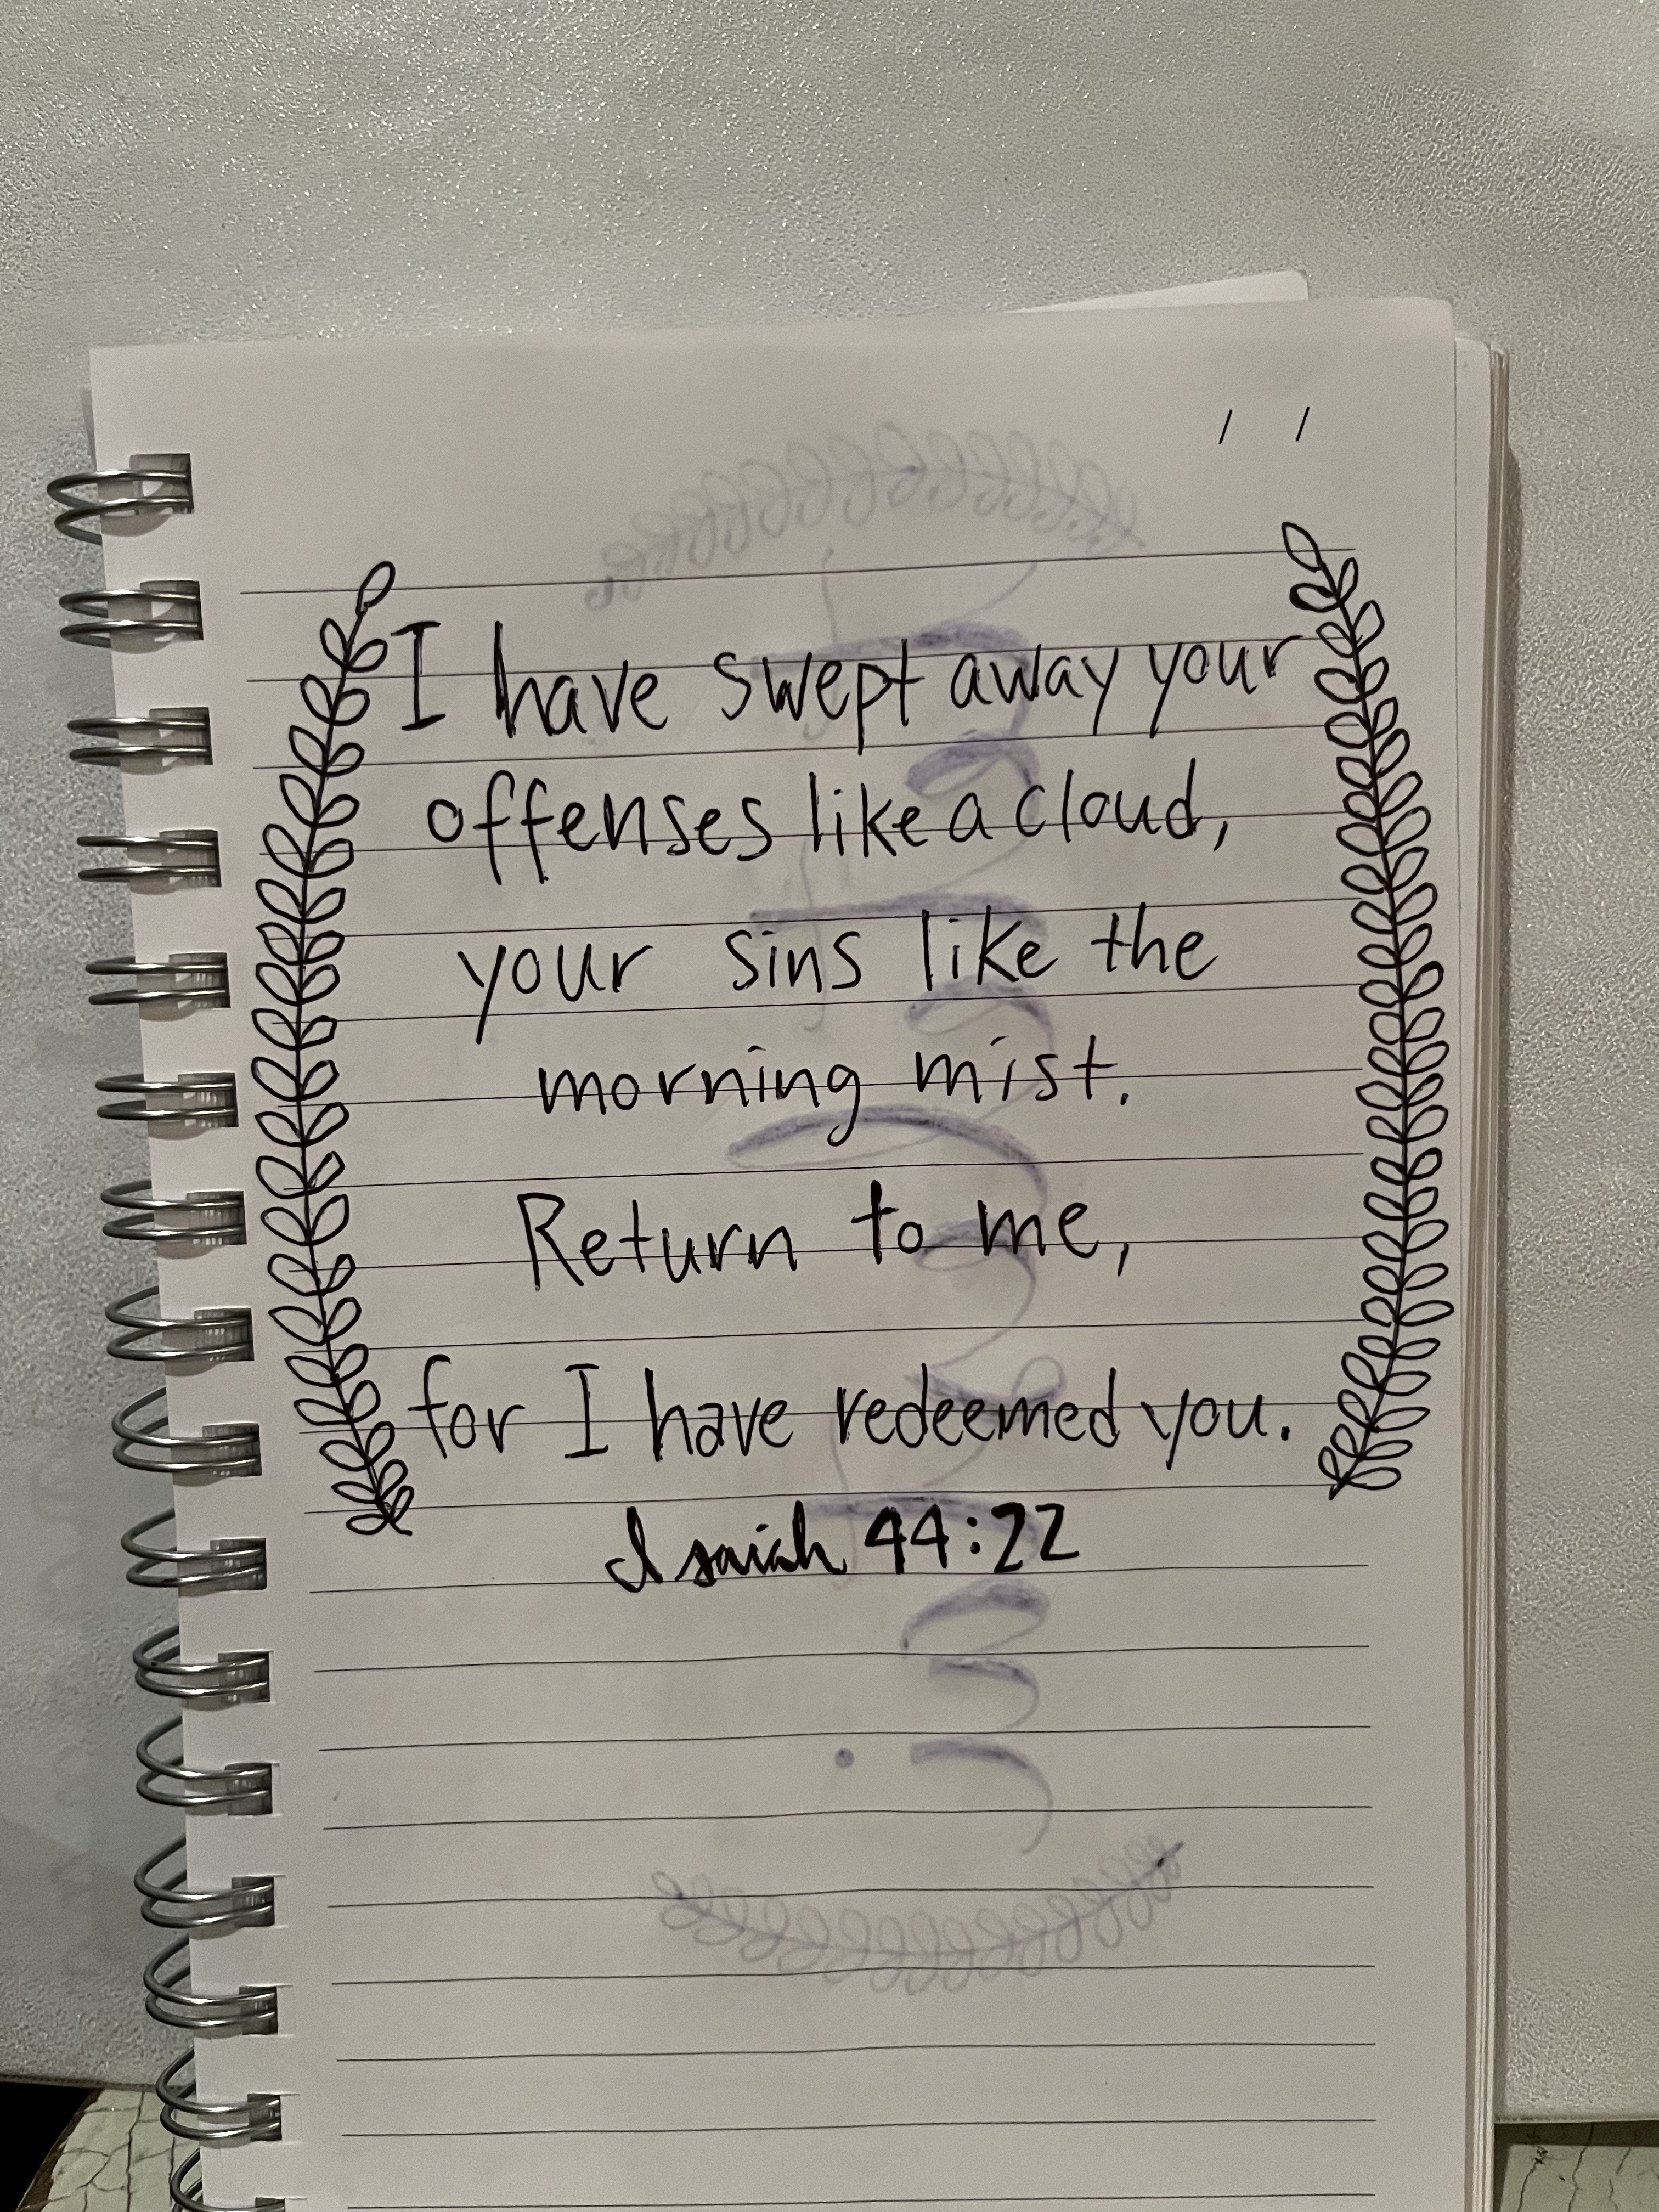 I have swept away your
offenses like a cloud,
your sins like the
morning mist.
Return to me,
for I have redeemed you.
Isaiah 44:22